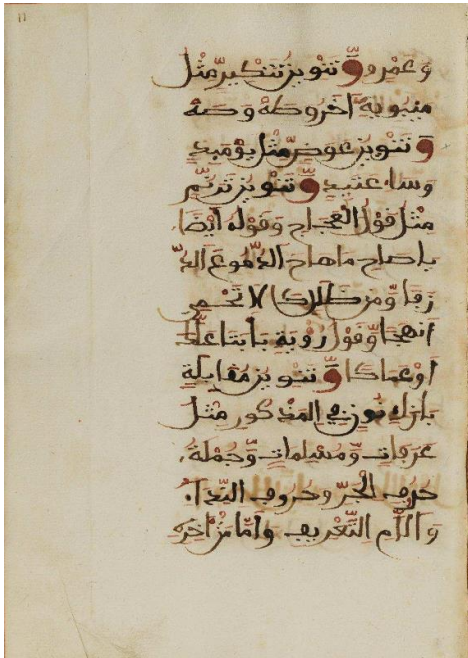 وعمرو وتنوين تنكير مثل
سيبويه اخر وطه وصه
وتنوين عوض مثل يومئذ
وساعتئذ وتنوين ترنم
مثل قول العجاج وقوله أيضا
ياصاح ماهاج الدموع الذ
رفا ومن طلل كا لا تحمي
أنهجا وقول روبة يا أبتا علك
أو عساكا وتنوين مقابلة
بازاء نون في المذكور مثل
عرفات ومسلمات وجملة
حروف الجر وحروف النداء
والام التعريف واما من اخره